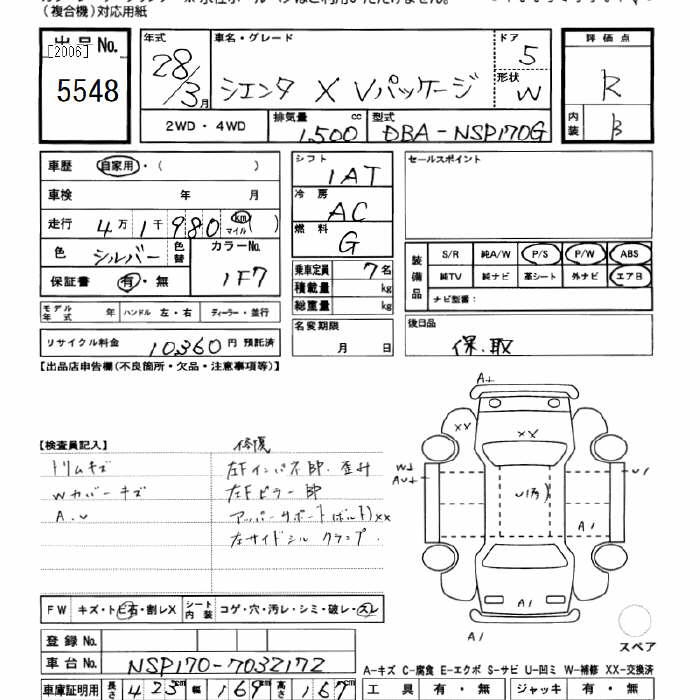 （複合機）対応用紙
出品No.
[2006]
5548
年式 28/3月
車名・グレード シエンタ X Vパッケージ
ドア 5
形状 W
2WD・4WD
排気量 1,500 cc
型式 DBA-NSP170G
評価点 R
内装 B
車歴 自家用・( )
車検 年 月
走行 4万1千980 km マイル ( )
色 シルバー 色替 カラーNo. 1F7
保証書 有・無
モデル年式 年 ハンドル 左・右 ディーラー・並行
リサイクル料金 10360円 預託済
シフト 1AT
冷房 AC
燃料 G
乗車定員 7名
積載量 kg
総重量 kg
名変期限 月 日
セールスポイント
装備品 S/R 純A/W P/S P/W ABS
純TV 純ナビ 革シート 外ナビ エアB
ナビ型番：
後日品
保.取
【出品店申告欄(不良箇所・欠品・注意事項等)】
【検査員記入】
修復
トリムキズ 左Fインパネ部.歪み
Wカバーキズ 左Fピラー部
A.U アッパーサポート(ボルト)xx
左サイドシル クランプ.
A+
XX
XX
U1
A1
A1
A1
FW キズ・トビ石・割レX シート内装 コゲ・穴・汚レ・シミ・破レ・スレ
登録No.
車台No. NSP170-7032172
車庫証明用 長さ 423cm 幅 169cm 高さ 167cm
スペア
A-キズ C-腐食 E-エクボ S-サビ U-凹ミ W-補修 XX-交換済
工具 有・無 ジャッキ 有・無